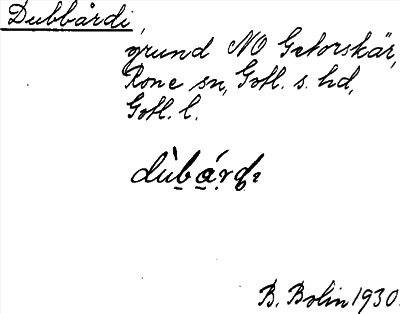 Dubbårdi,
grund NO Getorskär,
Rone sn, Gotl. s. hd,
Gotl. l.
dùbárdı
B. Bolin 1930.